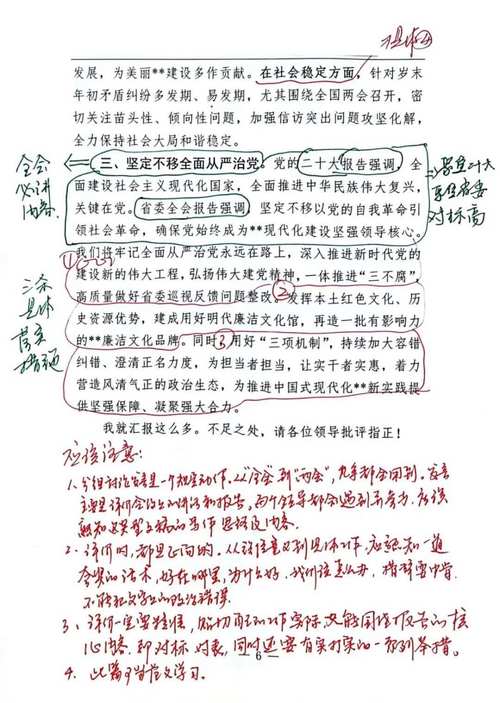 发展，为美丽**建设多作贡献。在社会稳定方面，针对岁末
年初矛盾纠纷多发期、易发期，尤其围绕全国两会召开，密
切关注苗头性、倾向性问题，加强信访突出问题攻坚化解，
全力保持社会大局和谐稳定。
三、坚定不移全面从严治党。党的二十大报告强调，全
面建设社会主义现代化国家，全面推进中华民族伟大复兴，
关键在党。省委全会报告强调，坚定不移以党的自我革命引
领社会革命，确保党始终成为**现代化建设坚强领导核心。
我们将牢记全面从严治党永远在路上，深入推进新时代党的
建设新的伟大工程，弘扬伟大建党精神，一体推进“三不腐”，
高质量做好省委巡视反馈问题整改，②发挥本土红色文化、历
史资源优势，建成用好明代廉洁文化馆，再造一批有影响力
的**廉洁文化品牌。同时③用好“三项机制”，持续加大容错
纠错、澄清正名力度，为担当者担当，让实干者实惠，着力
营造风清气正的政治生态，为推进中国式现代化**新实践提
供坚强保障、凝聚强大合力。
我就汇报这么多。不足之处，请各位领导批评指正！
全会
必讲
内容
三条
具体
落实
措施
对标高
应该注意：
1、分组讨论发言是一个规定动作，从“全会”到“两会”，
主要是评价会议上的讲话和报告，
熟知这类型文稿的写作思路及内容。
2、评价时，都是正向的。
好在哪里，为什么好，我们该怎么办，
不能犯文字上的政治错误。
3、评价一定要精准，
心内容。即对标对表，同时还要有实打实的一系列举措。
4、此篇可当范文学习。
6